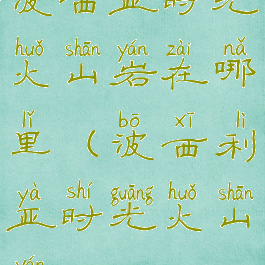 波西亚时光
huǒ shān yán zài nǎ
火山岩在哪
lǐ bō xī lì
里（波西利
yà shí guāng huǒ shān
亚时光火山
yán